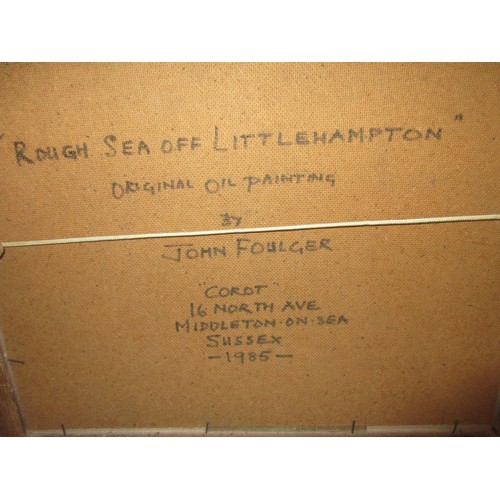 "ROUGH SEA OFF LITTLEHAMPTON"
ORIGINAL OIL PAINTING
BY
JOHN FOULGER
"COROT"
16 NORTH AVE
MIDDLETON-ON-SEA
SUSSEX
-1985-